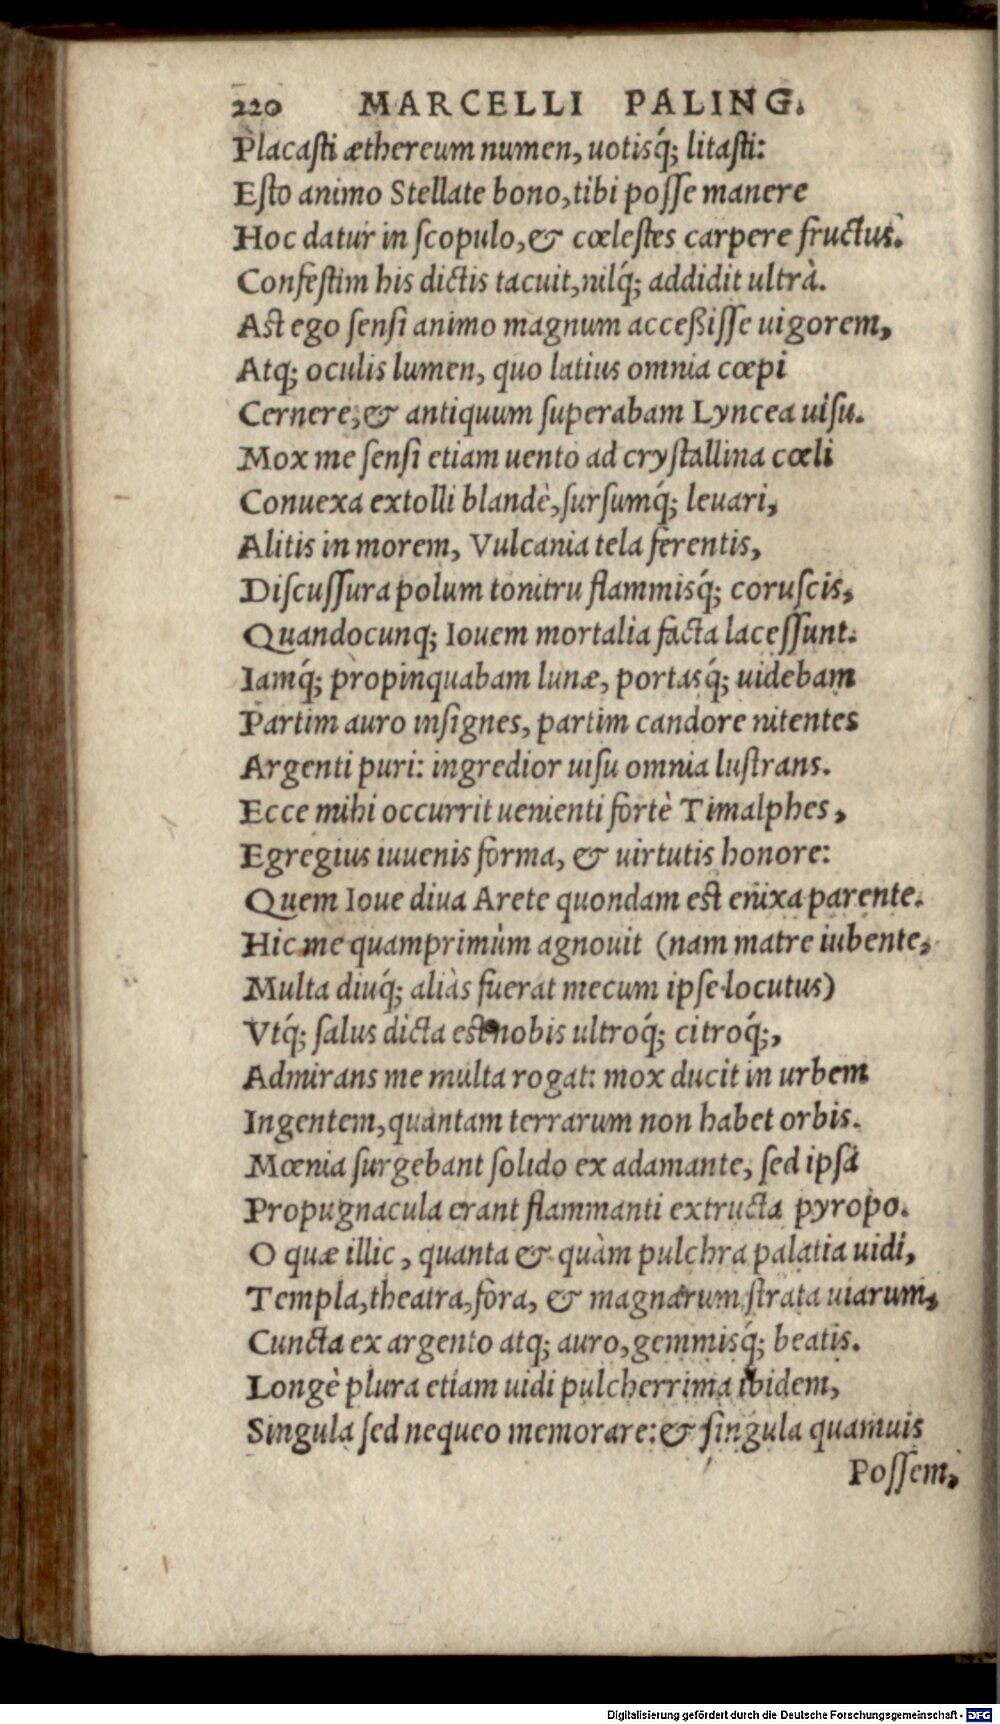 220 MARCELLI PALING.
Placasti æthereum numen, uotisq́; litasti:
Esto animo Stellate bono, tibi posse manere
Hoc datur in scopulo, & cœlestes carpere fructus.
Confestim his dictis tacuit, nilq́; addidit ultrà.
Ast ego sensi animo magnum acceßisse uigorem,
Atq; oculis lumen, quo latius omnia cœpi
Cernere, & antiquum superabam Lyncea uisu.
Mox me sensi etiam uento ad crystallina cœli
Conuexa extolli blandè, sursumq́; leuari,
Alitis in morem, Vulcania tela ferentis,
Discussura polum tonitru flammisq́; coruscis,
Quandocunq; Iouem mortalia facta lacessunt.
Iamq́; propinquabam lunæ, portasq́; uidebam
Partim auro insignes, partim candore nitentes
Argenti puri: ingredior uisu omnia lustrans.
Ecce mihi occurrit uenienti fortè Timalphes,
Egregius iuuenis forma, & uirtutis honore:
Quem Ioue diua Arete quondam est enixa parente.
Hic me quamprimùm agnouit (nam matre iubente,
Multa diuq́; aliàs fuerat mecum ipse locutus)
Vtq́; salus dicta est nobis ultroq́; citroq́;,
Admirans me multa rogat: mox ducit in urbem
Ingentem, quantam terrarum non habet orbis.
Mœnia surgebant solido ex adamante, sed ipsa
Propugnacula erant flammanti extructa pyropo.
O quæ illic, quanta & quàm pulchra palatia uidi,
Templa, theatra, fora, & magnarum strata uiarum,
Cuncta ex argento atq; auro, gemmisq́; beatis.
Longè plura etiam uidi pulcherrima ibidem,
Singula sed nequeo memorare: & singula quamuis
Possem,
Digitalisierung gefördert durch die Deutsche Forschungsgemeinschaft - DFG